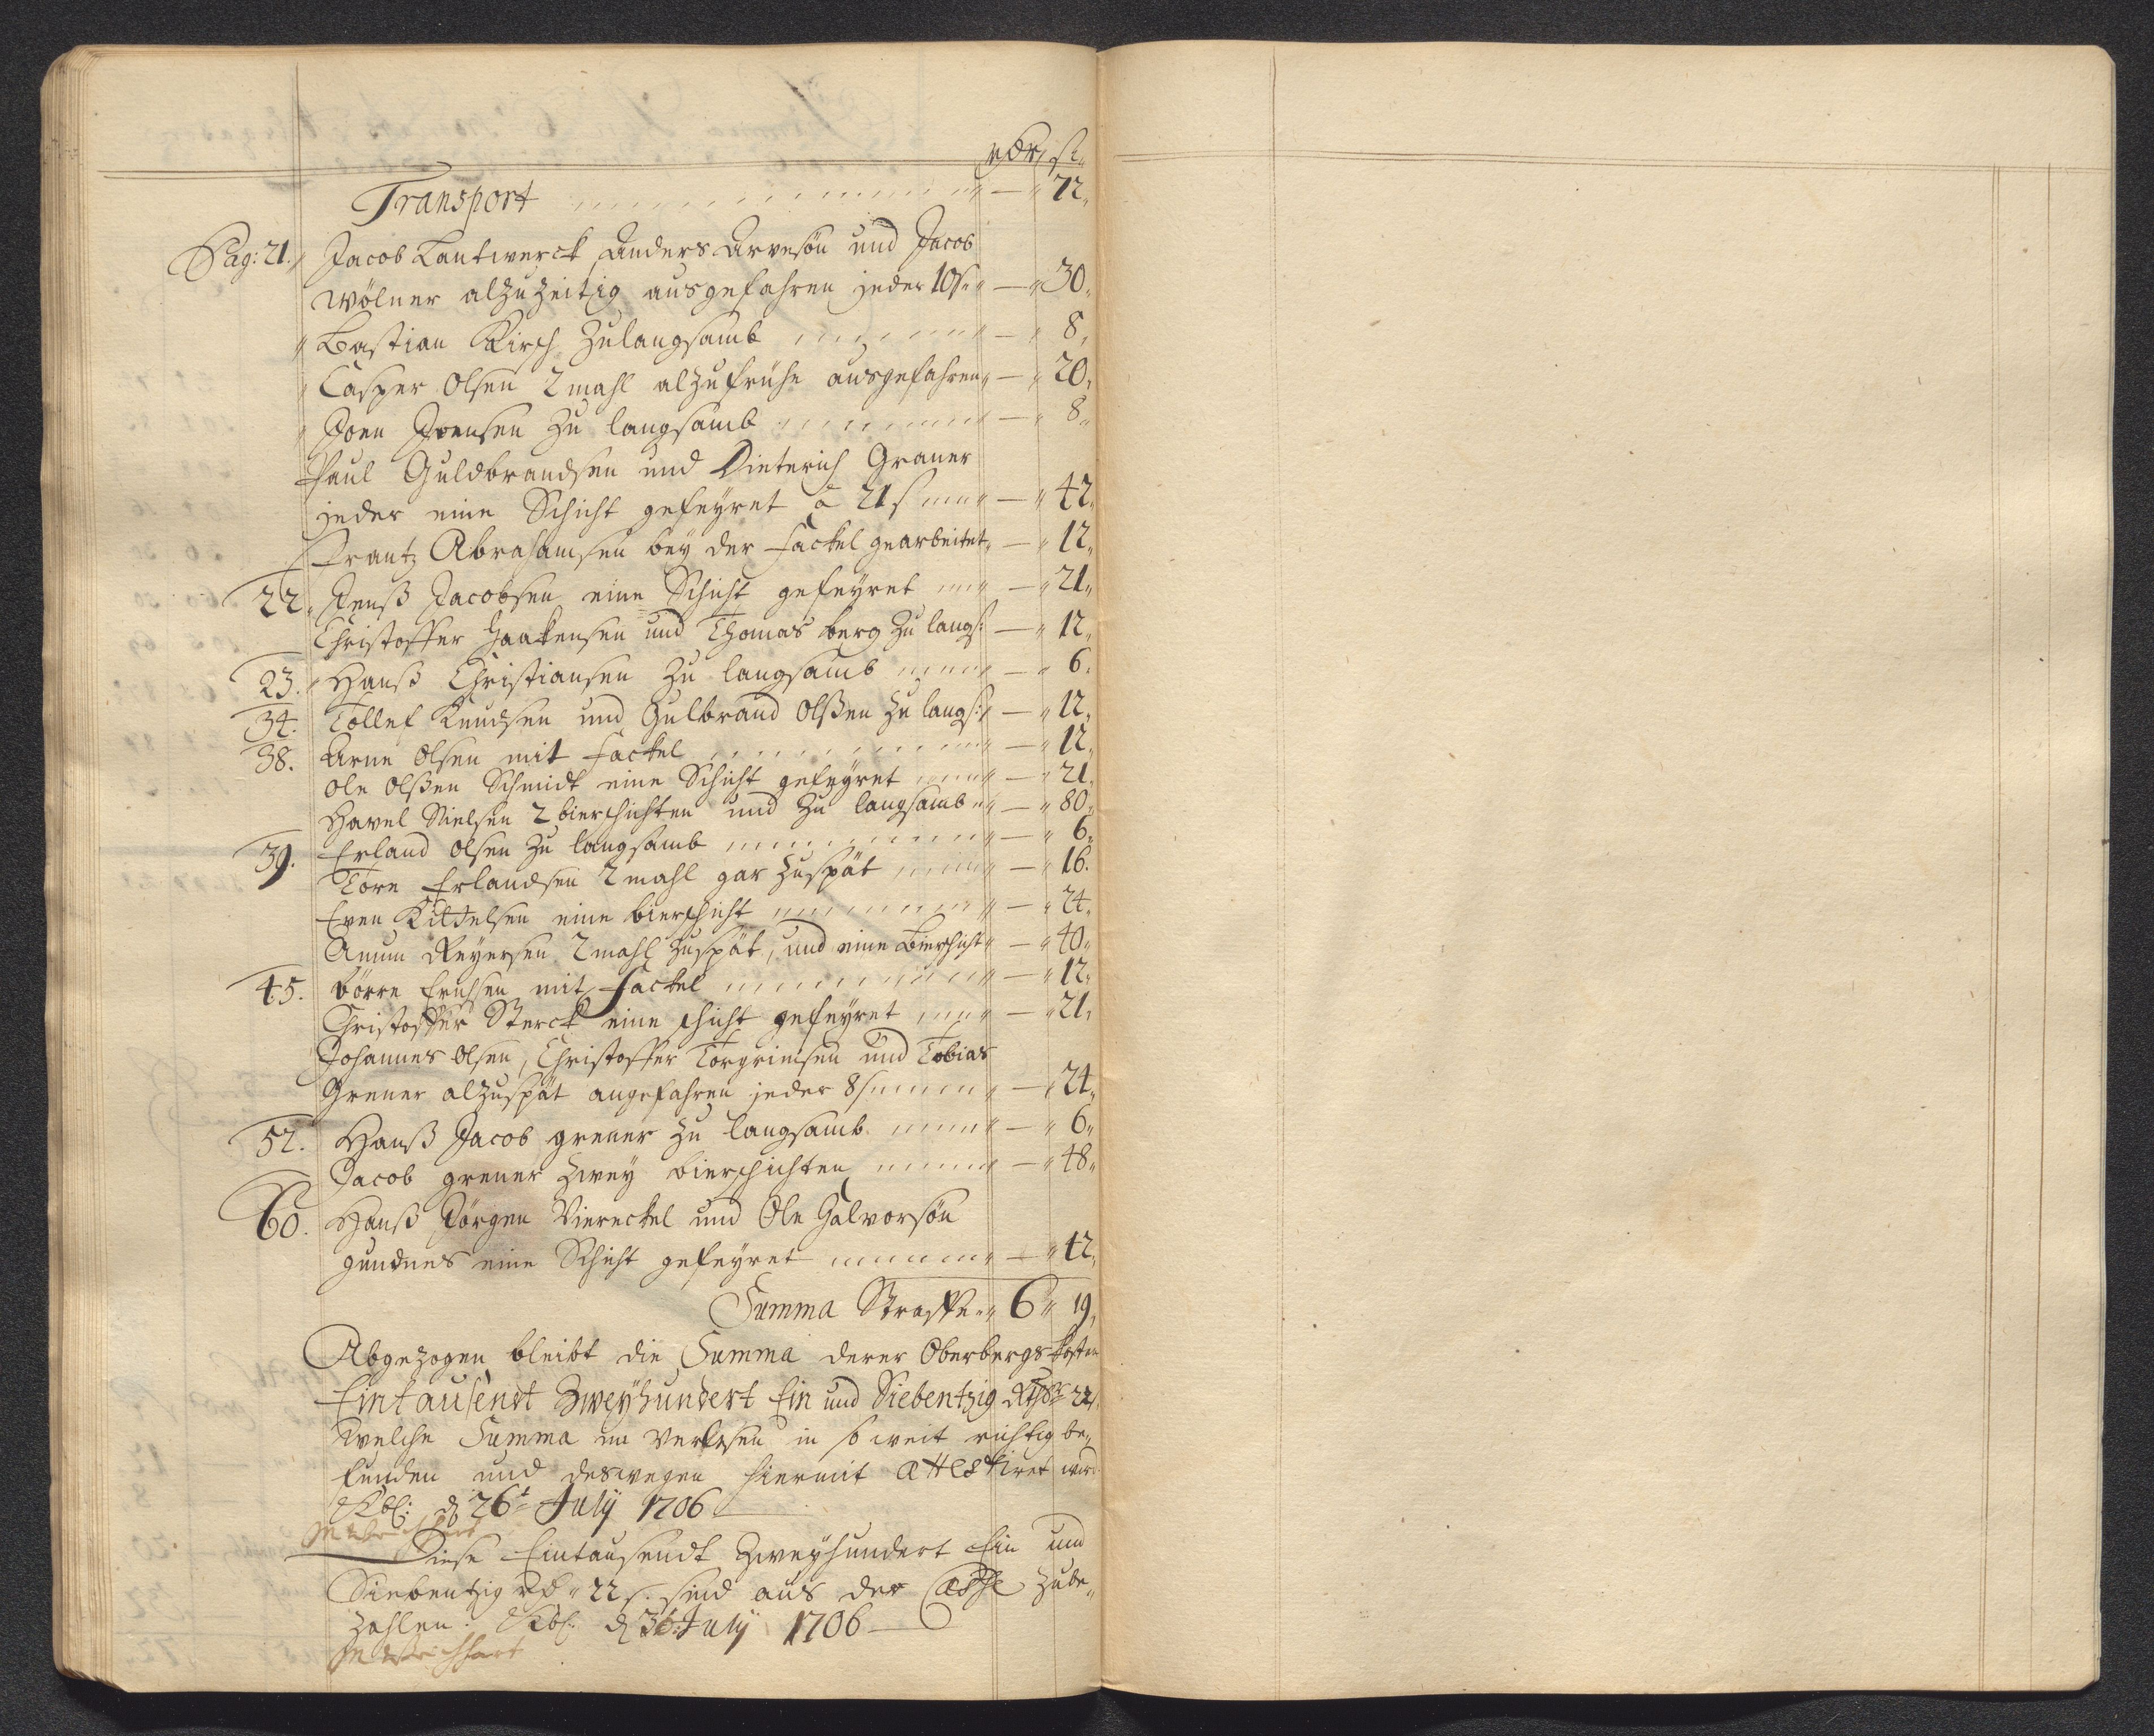 rdr, s.
Transport — 72.
Pag: 21. Jacob Lantwerck Anders Arvesön und Jacob
Wölner alzuzeitig ausgefahren jeder 10 s. — 30.
Bastian Kirsch Zulangsamb — 8.
Casper Olsen 2 mahl alzufrühe ausgefahren — 20.
Joen Joensen Zu langsamb — 8.
Paul Guldbrandsen und Dieterich Graner
jeder eine Schicht gefeyret à 21 s — 42.
Frantz Abrahamsen bey der Fackel gearbeitet — 12.
22. Jenß Jacobsen eine Schicht gefeyret — 21.
Christoffer Haakensen und Thomas berg Zu langs: — 12.
23. Hanß Christiansen Zu langsamb — 6.
34. Tollef Knudsen und Gulbrand Olßen Zu langs: — 12.
38. Arne Olsen mit Fackel — 12.
Ole Olßen Schmidt eine Schicht gefeyret — 21.
Havel Nielsen 2 bierschichten und Zu langsamb — 80.
39. Erland Olsen Zu langsamb — 6.
Tore Erlandsen 2 mahl gar Zuspät — 16.
Even Kittelsen eine bierschicht — 24.
Anum Reyersen 2 mahl Zuspät, und eine Bierschicht — 40.
45. börre Erichsen mit Fackel — 12.
Christoffer Sterck eine schicht gefeyret — 21.
Johannes Olsen, Christoffer Torgrimsen und Tobias
Grener alzuspät angefahren jeder 8 s — 24.
52. Hanß Jacob grener Zu langsamb — 6.
Jacob grener Zwey bierschichten — 48.
60. Hanß Jörgen Viereckel und Ole Halvorsön
gundnes eine Schicht gefeyret — 42.
Summa Straffe 6 19.
Abgezogen bleibt die Summa derer Oberbergskosten
Eintausendt Zweyhundert Ein und Siebentzig Rthlr 22 s.
Welche Summa im Verlesen in so weit richtig be„
funden und deswegen hiermit attestiret wird
Kbg: d 26t July 1706
Diese Eintausendt Zweyhundert Ein und
Siebentzig rd „ 22 s. sind aus der Casse Zube„
Zahlen. Kbg: d 36: July 1706